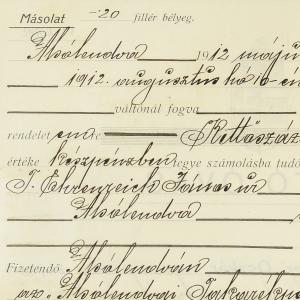 Másolat -20 fillér bélyeg.
Alsólendva 1912 május
1912. augusztus hó 16-én
váltónál fogva
rendelet em Kettőszáz
értéke készpénzben tegye számolásba tudó
T. Ehrenreich János úr
Alsólendva
Fizetendő Alsólendván
az Alsólendvai Takarék